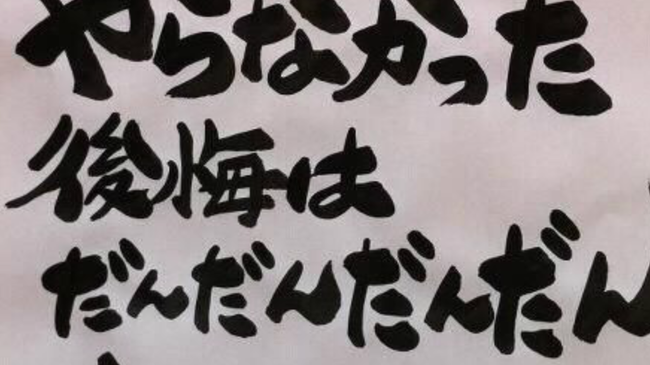 やらなかった
後悔は
だんだんだんだん